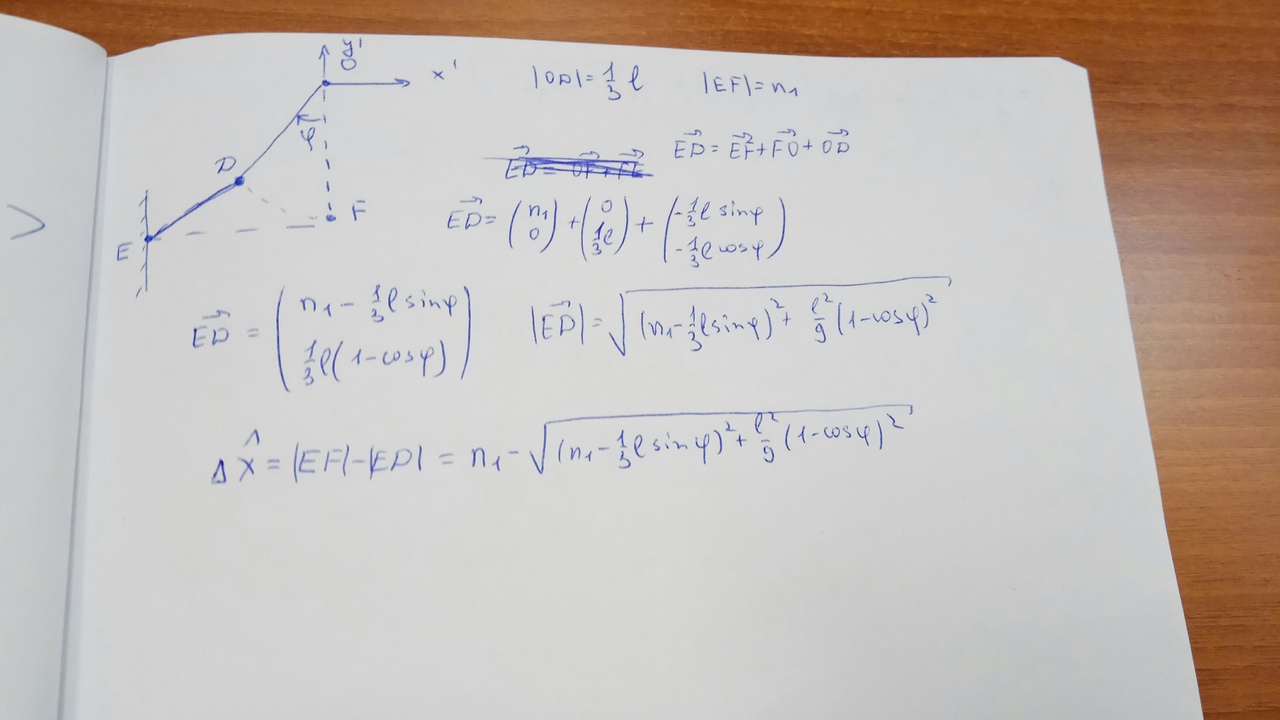 y'
O
x'
|OD| = 1/3 ℓ |EF| = n₁
φ
D
F
E
ED⃗ = EF⃗ + FO⃗ + OD⃗
ED⃗ = (n₁ 0) + (0 1/3 ℓ) + (-1/3 ℓ sinφ -1/3 ℓ cosφ)
ED⃗ = (n₁ - 1/3 ℓ sinφ 1/3 ℓ (1 - cosφ)) |ED⃗| = √((n₁ - 1/3 ℓ sinφ)² + ℓ²/9 (1 - cosφ)²)
Δ X̂ = |EF| - |ED| = n₁ - √((n₁ - 1/3 ℓ sinφ)² + ℓ²/9 (1 - cosφ)²)